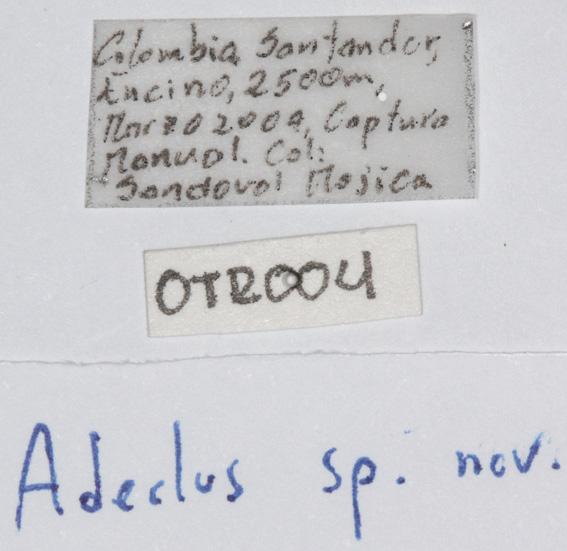 Colombia, Santander,
Encino, 2500m,
Marzo 2004, Captura
Manual. Col:
Sandoval Mojica
OTR004
Adeclus sp. nov.